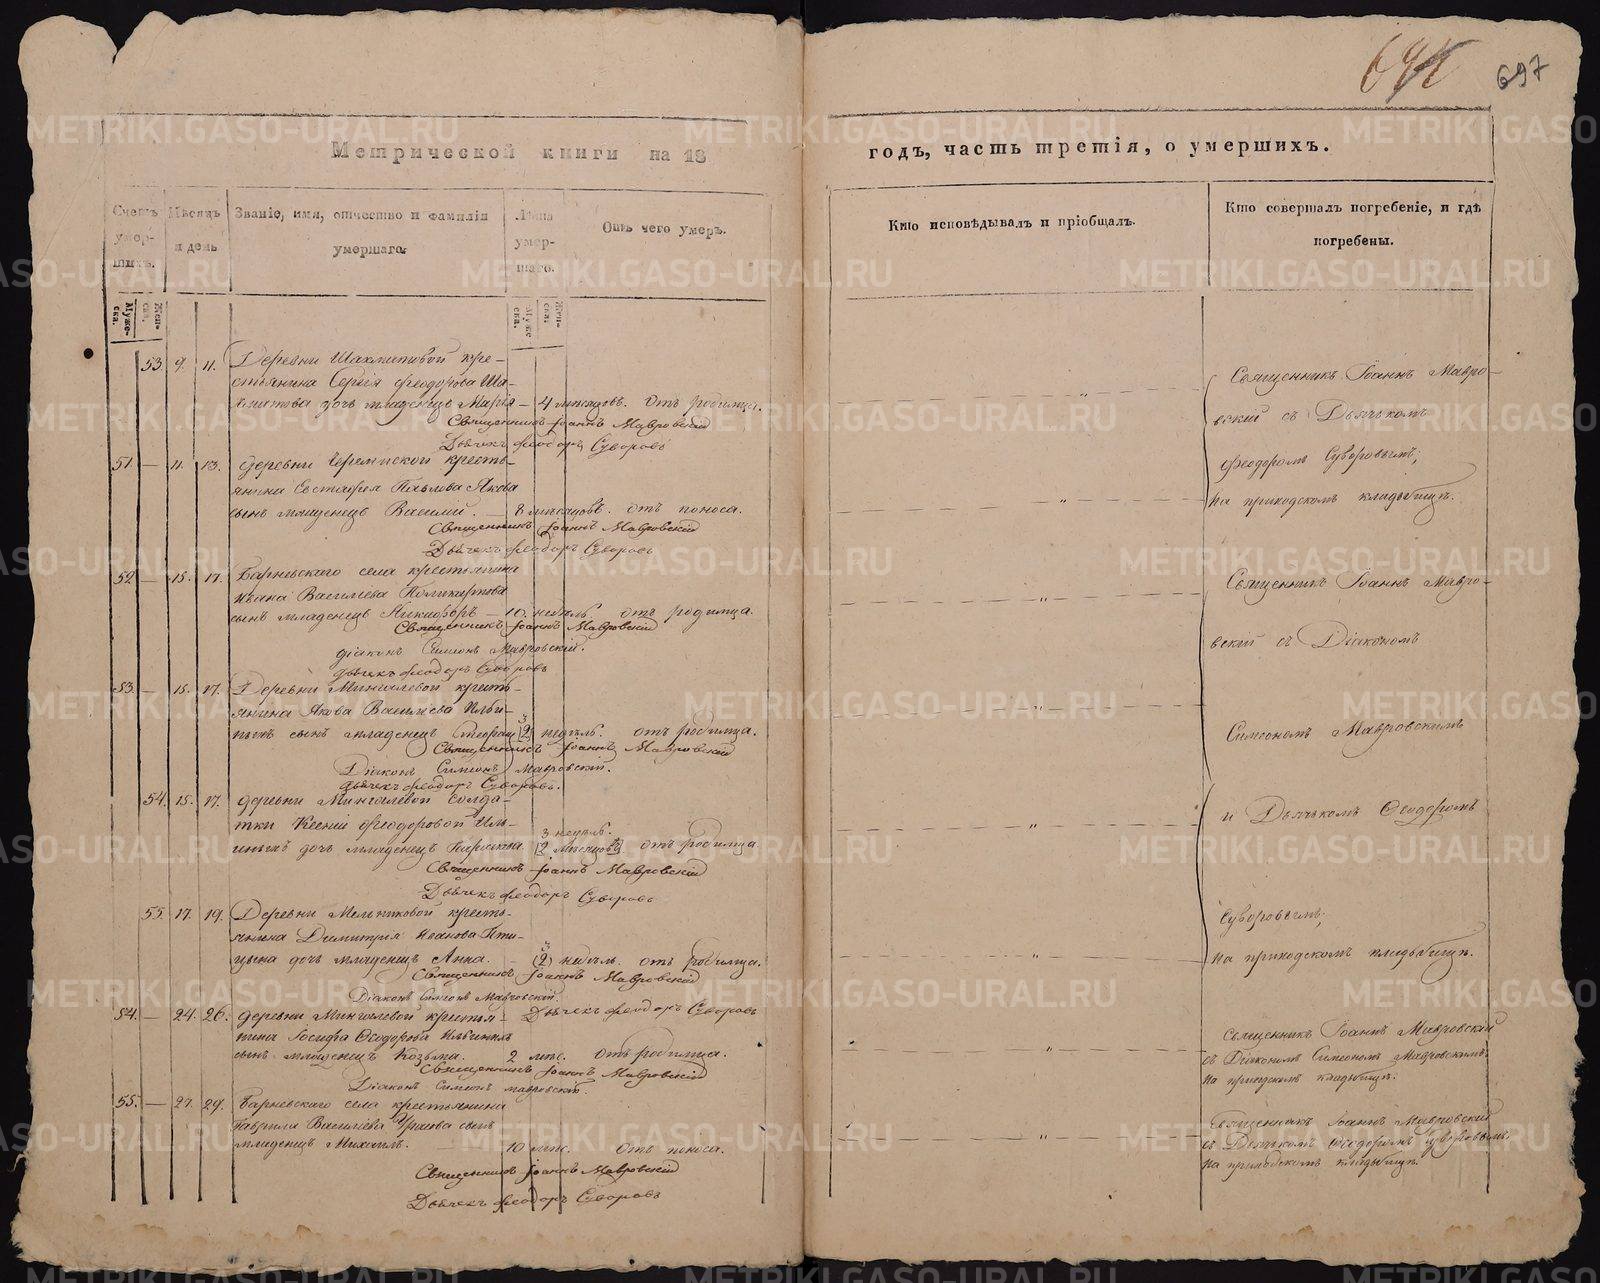 697
Метрической книги на 18
годъ, часть третія, о умершихъ.
Счетъ умершихъ.
Мѣсяцъ и день
Званіе, имя, отчество и фамилія умершаго.
Лѣта умершаго.
Отъ чего умеръ.
Кто исповѣдывалъ и пріобщалъ.
Кто совершалъ погребеніе, и гдѣ погребены.
Муже-ска.
Жен-ска.
Муже ска.
Жен-ска.
53. 9. 11. Деревни Шахматовой кре-
стьянина Сергія Феодорова Ша-
хматова дочь младенецъ Марія — 4 мѣсяцовъ. отъ родимца.
Священникъ Іоаннъ Мавровскій
Дьячекъ Феодоръ Суворовъ
51. — 11. 13. деревни Черемисской кресть-
янина Евстафія Павлова Якова
сынъ младенецъ Василій. — 8 мѣсяцовъ. отъ поноса.
Священникъ Іоаннъ Мавровскій
Дьячекъ Феодоръ Суворовъ
52 — 15. 17. Барневскаго села крестьянина
Ивана Васильева Поликарпова
сынъ младенецъ Никифоръ — 10. недѣль. отъ родимца.
Священникъ Іоаннъ Мавровскій
діаконъ Симеонъ Мавровскій.
дьячекъ Феодоръ Суворовъ
53. — 15. 17. Деревни Мингалевой кресть-
янина Якова Васильева Ильи-
ныхъ сынъ младенецъ 3 (2) недѣль. отъ родимца.
Священникъ Іоаннъ Мавровскій
Діаконъ Симеонъ Мавровскій.
дьячекъ Феодоръ Суворовъ.
54. 15. 17. деревни Мингалевой солда-
тки Ксеніи Феодоровой Иль-
иныхъ дочь младенецъ 3 недѣль. (2 мѣсяцовъ). отъ родимца
Священникъ Іоаннъ Мавровскій
Дьячекъ Феодоръ Суворовъ
55. 17. 19. Деревни Мельниковой кресть-
янина Димитрія Иванова Пти-
цына дочь младенецъ Анна. — 3 (2) недѣль. отъ родимца.
Священникъ Іоаннъ Мавровскій
Діаконъ Симеонъ Мавровскій.
Дьячекъ Феодоръ Суворовъ
54. — 24. 26. деревни Мингалевой крестья-
нина Іосифа Феодорова Ильиныхъ
сынъ младенецъ Козьма. 2 мѣс. отъ родимца.
Священникъ Іоаннъ Мавровскій
Діаконъ Симеонъ Мавровскій.
55. — 27. 29. Барневскаго села крестьянина
Гаврила Васильева сынъ
младенецъ Михаилъ. 10 мѣс. отъ поноса.
Священникъ Іоаннъ Мавровскій
Дьячекъ Феодоръ Суворовъ
Священникъ Іоаннъ Мавро-
вскій съ Дьячькомъ
Феодоромъ Суворовымъ;
На приходскомъ кладбищѣ.
Священникъ Іоаннъ Мавро-
вскій съ Діакономъ
Симеономъ Мавровскимъ
и Дьячькомъ Феодоромъ
Суворовымъ;
На приходскомъ кладбищѣ.
Священникъ Іоаннъ Мавровскій
съ Діакономъ Симеономъ Мавровскимъ
На приходскомъ кладбищѣ.
Священникъ Іоаннъ Мавровскій
съ Дьячкомъ Феодоромъ Суворовымъ.
На приходскомъ кладбищѣ.
METRIKI.GASO-URAL.RU